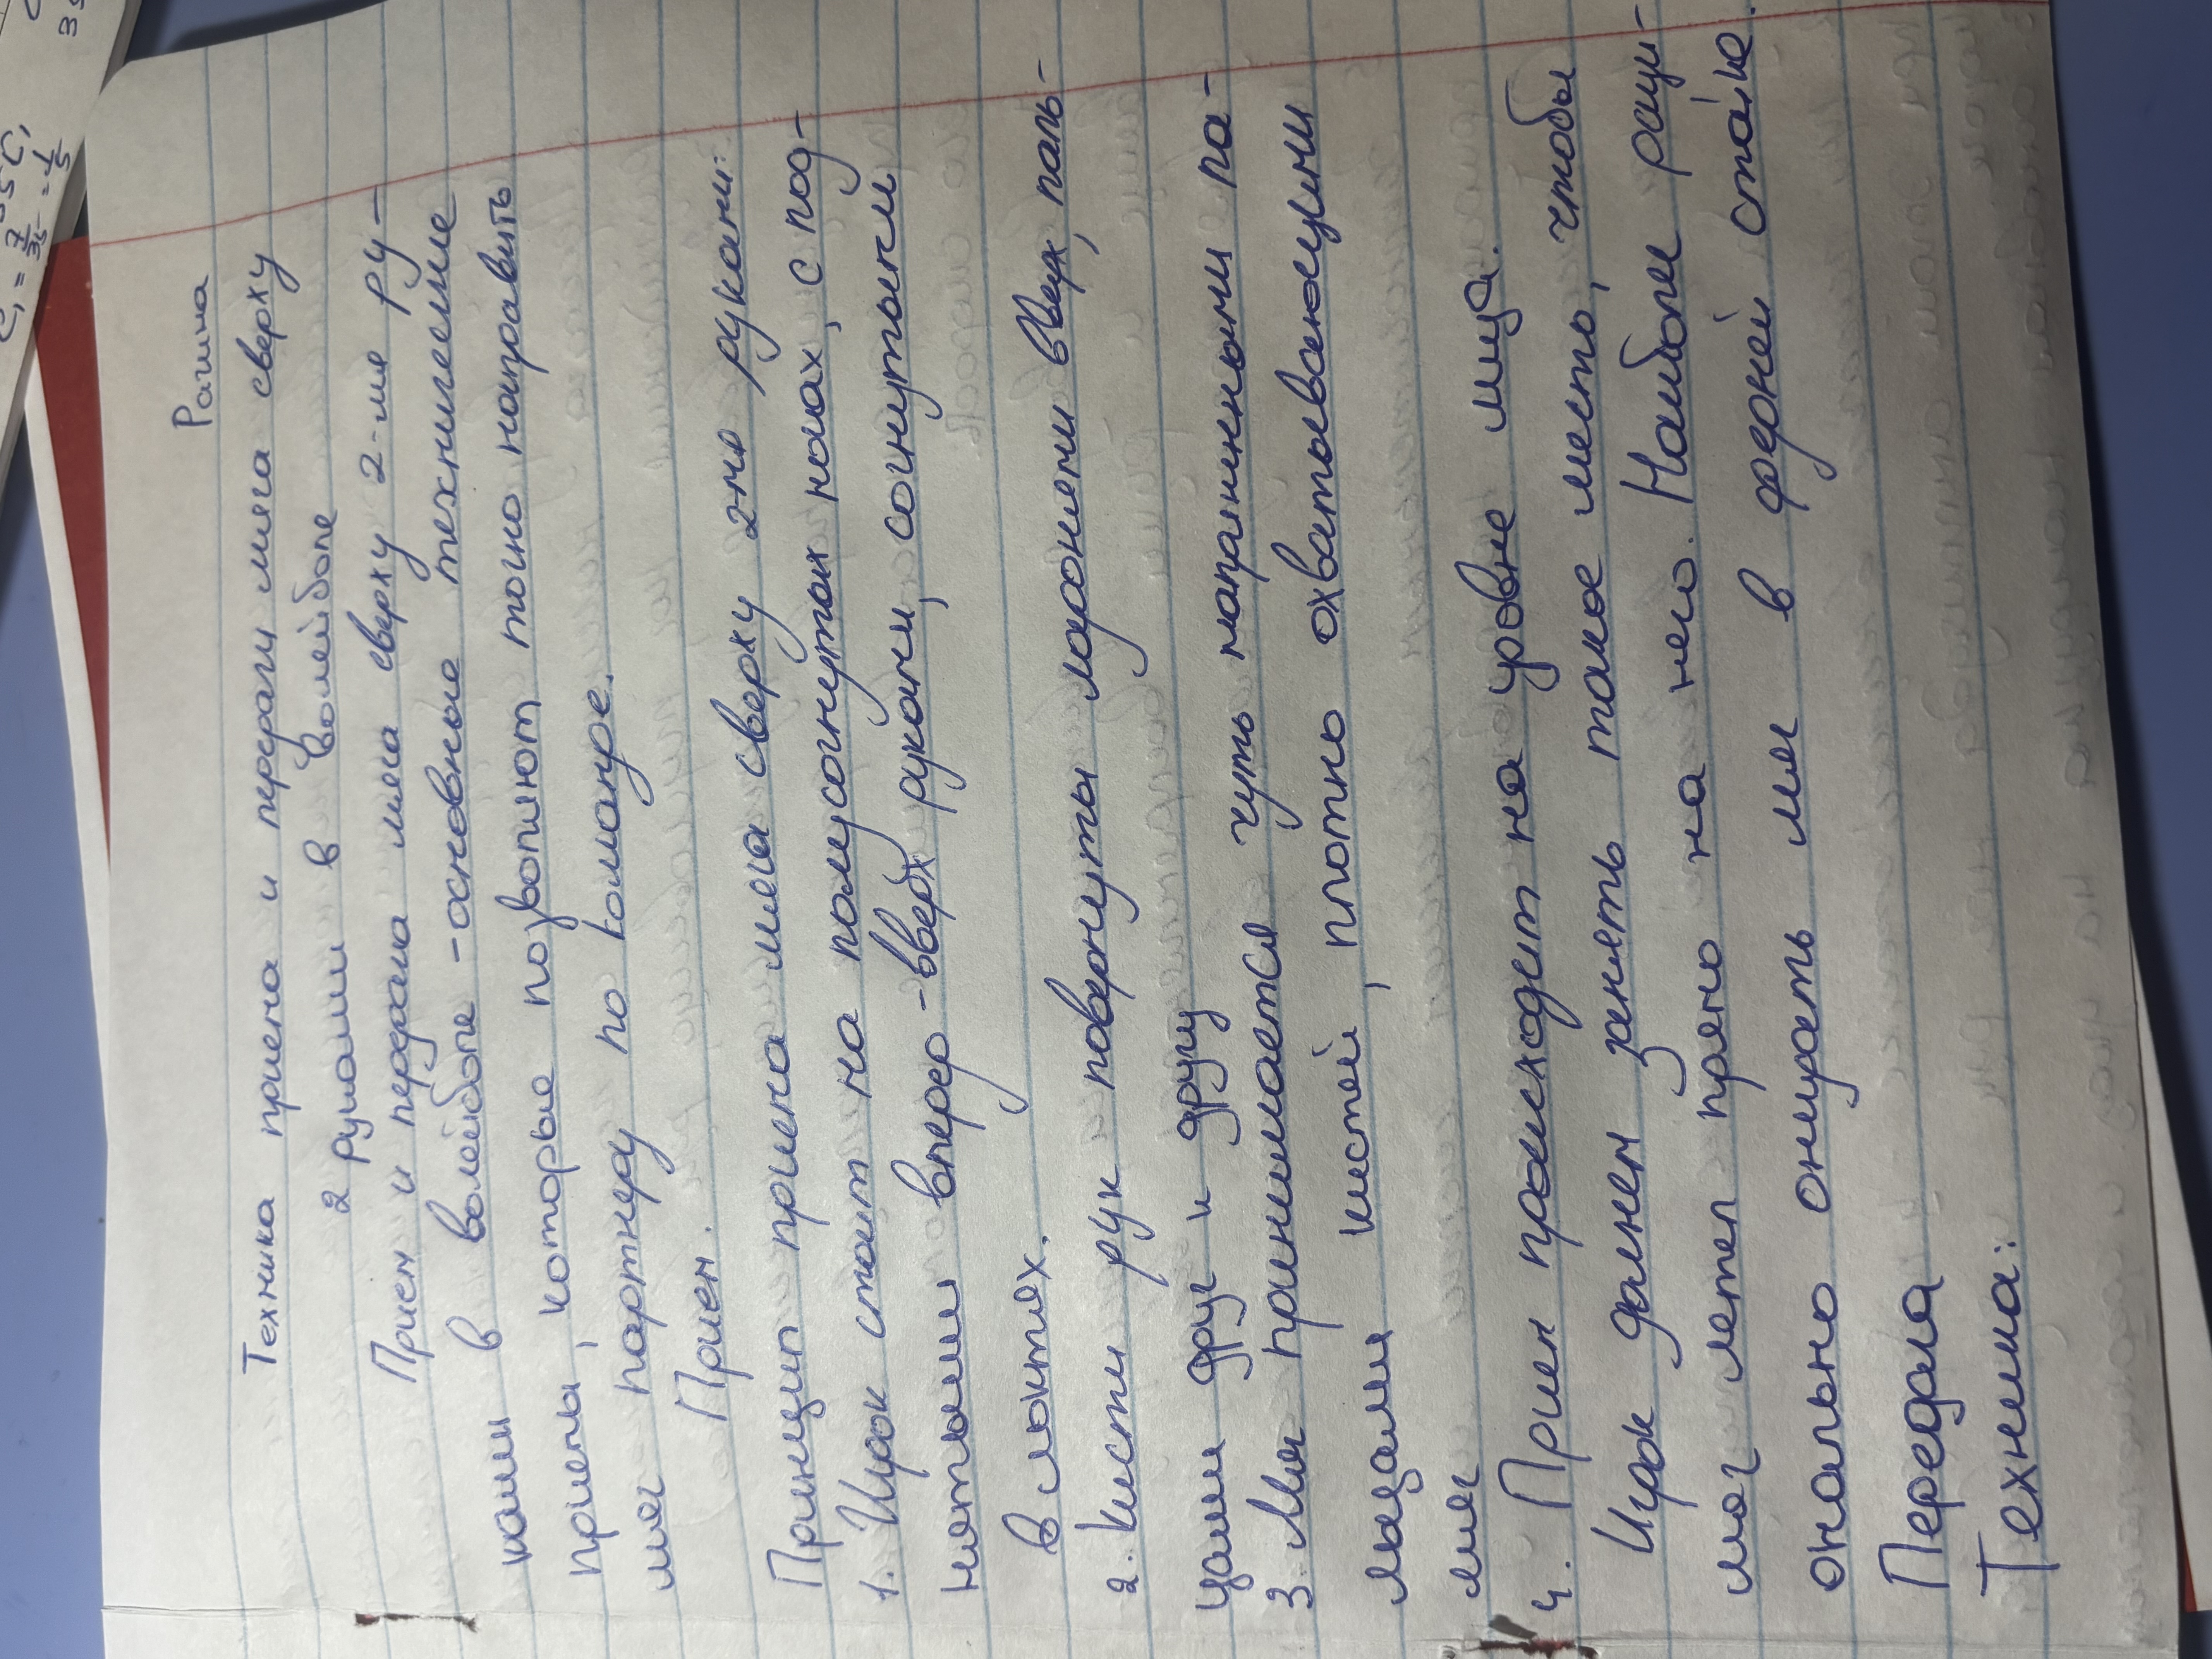 Рашна
Техника приема и передачи мяча сверху
2 руками в волейболе
Прием и передача мяча сверху 2-мя ру-
ками в волейболе - основные технические
приемы, которые позволяют точно направить
мяч партнеру по команде.
Прием.
Принцип приема мяча сверху 2-мя руками:
1. Игрок стоит на полусогнутых ногах, с под-
нятыми вперед-вверх руками, согнутыми
в локтях.
2. Кисти рук повернуты ладонями вверх, паль-
цами друг к другу
3. Мяч принимается чуть напряженными па-
льцами кистей, плотно охватывающими
мяч
4. Прием происходит на уровне лица.
Игрок должен занять такое место, чтобы
мяч летел прямо на него. Наиболее раци-
онально онирать мяч в средней стойке.
Передача
Техника:
C₁ = 7/35 = 1/5